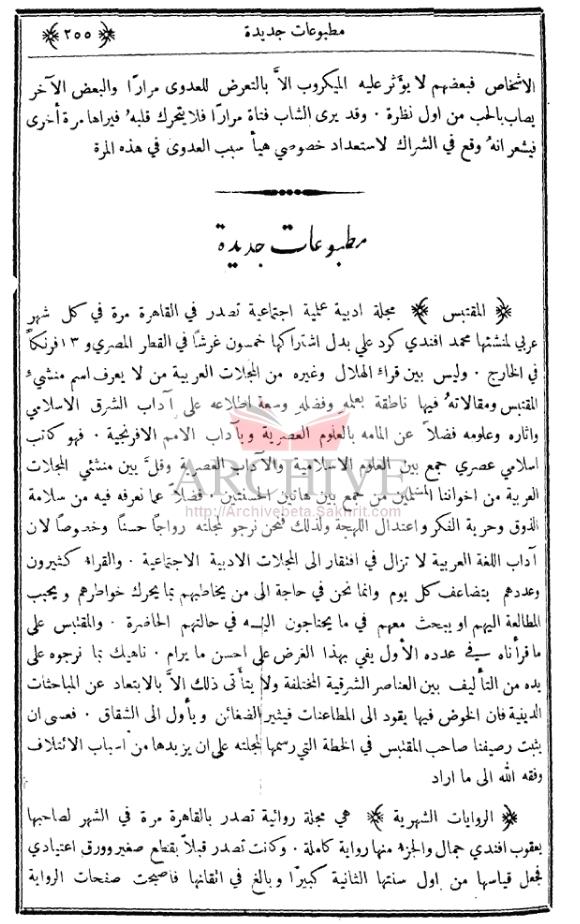 مطبوعات جديدة
﴿ ٢٥٥ ﴾
الاشخاص فبعضهم لا يؤثر عليه الميكروب الاَّ بالتعرض للعدوى مرارًا والبعض الآخر
يصاب بالحب من اول نظرة ٠ وقد يرى الشاب فتاة مرارًا فلا يتحرك قلبهُ فيراها مرة أخرى
فيشعر انهُ وقع في الشراك لاستعداد خصوصي هيأ سبب العدوى في هذه المرة
مطبوعات جديدة
﴿ المقتبس ﴾ مجلة ادبية علمية اجتماعية تصدر في القاهرة مرة في كل شهر
عربي لمنشئها محمد افندي كرد علي بدل اشتراكها خمسون غرشًا في القطر المصري و١٣ فرنكاً
في الخارج ٠ وليس بين قراء الهلال وغيره من المجلات العربية من لا يعرف اسم منشيء
المقتبس ومقالاتهُ فيها ناطقة بعلمه وفضله وسعة اطلاعه على آداب الشرق الاسلامي
واثاره وعلومه فضلاً عن المامه بالعلوم العصرية وبآداب الامم الافرنجية ٠ فهو كاتب
اسلامي عصري جمع بين العلوم الاسلامية والآداب العصرية وقلَّ بين منشئي المجلات
العربية من اخواننا المسلمين من جمع بين هاتين الحسنتين ٠ فضلاً عما نعرفه فيه من سلامة
الذوق وحرية الفكر واعتدال اللهجة ولذلك فنحن نرجو لمجلته رواجاً حسناً وخصوصاً لان
آداب اللغة العربية لا تزال في افتقار الى المجلات الادبية الاجتماعية ٠ والقراء كثيرون
وعددهم يتضاعف كل يوم وانما نحن في حاجة الى من يخاطبهم بما يحرك خواطرهم ويحبب
المطالعة اليهم او يبحث معهم في ما يحتاجون اليه في حالتهم الحاضرة ٠ والمقتبس على
ما قرأناه في عدده الأول يفي بهذا الغرض على احسن ما يرام ٠ ناهيك بما نرجوه على
يده من التأليف بين العناصر الشرقية المختلفة ولا يتأتى ذلك الاَّ بالابتعاد عن المباحثات
الدينية فان الخوض فيها يقود الى المطاعنات فيثير الضغائن ويأول الى الشقاق ٠ فعسى ان
يثبت رصيفنا صاحب المقتبس في الخطة التي رسمها لمجلته على ان يزيدها من اسباب الائتلاف
وفقه الله الى ما اراد
﴿ الروايات الشهرية ﴾ هي مجلة روائية تصدر بالقاهرة مرة في الشهر لصاحبها
يعقوب افندي جمال والجزء منها رواية كاملة ٠ وكانت تصدر قبلاً بقطع صغير وورق اعتيادي
فجعل قياسها من اول سنتها الثانية كبيرًا وبالغ في اتقانها فاصبحت صفحات الرواية
ARCHIVE
http://Archivebeta.Sakhrit.com